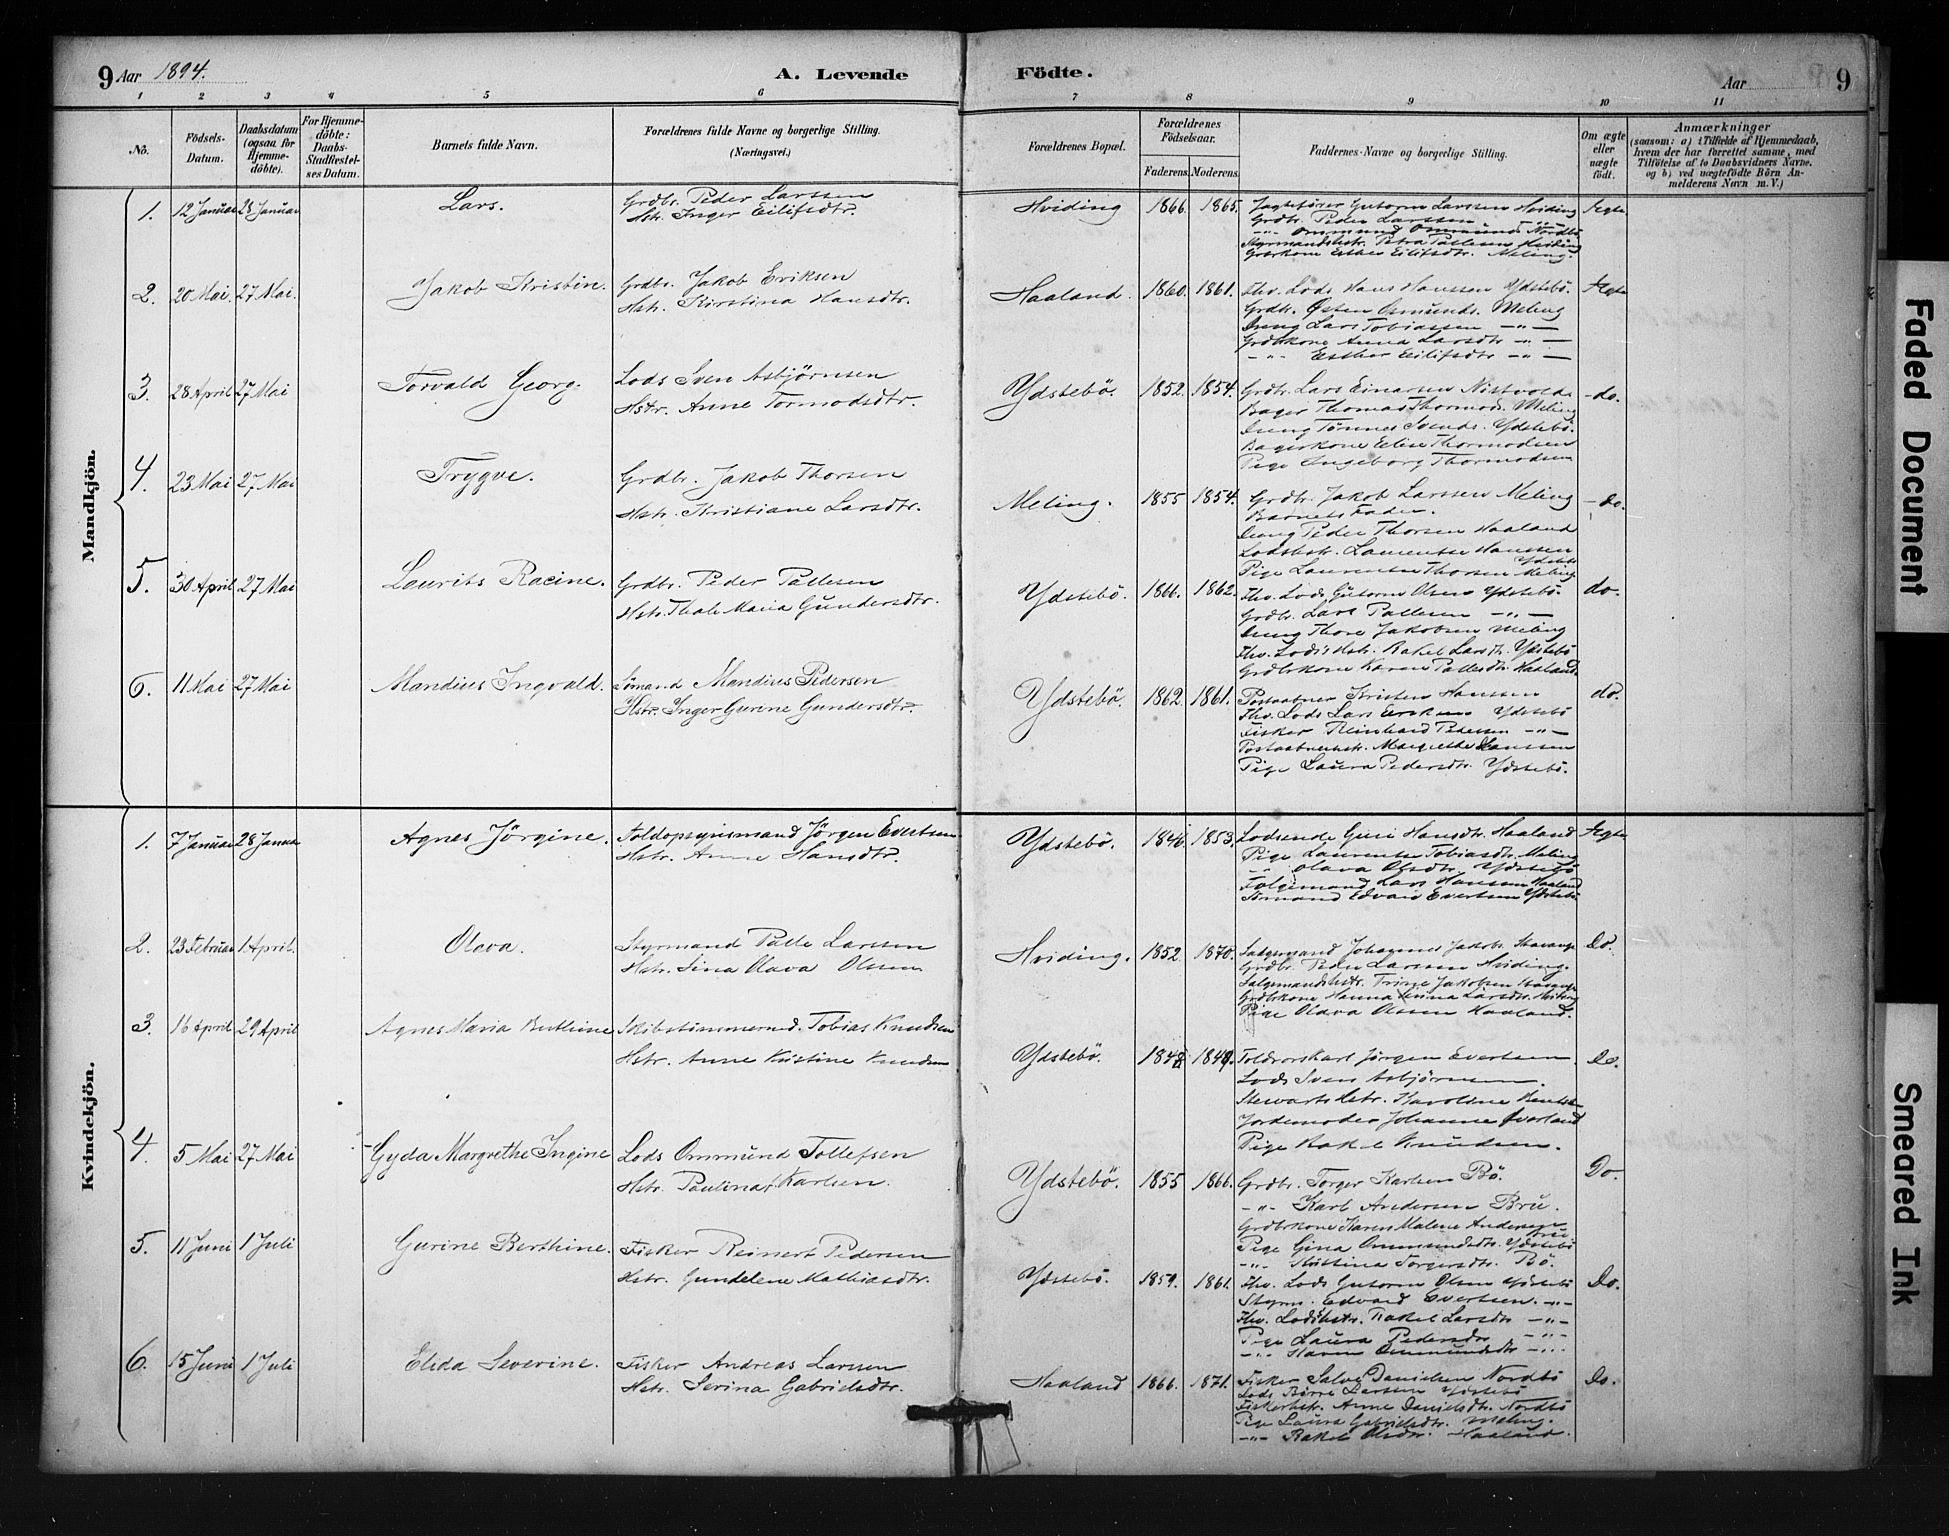 9 Aar 1894.
A. Levende
Födte.
Aar
9
1 2 3 4 5 6 7 8 9 10 11
No.
Födsels-Datum.
Daabsdatum (ogsaa for Hjemmedöbte).
For Hjemmedöbte: Daabs-Stadfæstelses Datum.
Barnets fulde Navn.
Forældrenes fulde Navne og borgerlige Stilling.
(Næringsvei.)
Forældrenes Bopæl.
Forældrenes Födselsaar.
Faderens. Moderens.
Faddernes Navne og borgerlige Stilling.
Om ægte eller uægte födt.
Anmærkninger
(saasom: a) i Tilfælde af Hjemmedaab, hvem der har forrettet samme, med Tilföielse af to Daabsvidners Navne, og b) ved uægtefödte Börn Anmelderens Navn m. V.)
Mandkjön.
1. 12 Januar 28 Januar Lars. Grdbr. Peder Larssen
Hstr. Inger Eilifsdtr.
Hviding 1866. 1865. Jagtefører Gutorm Larssen Hviding Ægte
Grdbr. Peder Larssen
-"- Ommund Ommunds. Nordbö
Styrmandshstr. Petra Pallesen Hviding
Grdbrkone Esther Eilifsdtr. Meling.
2. 20 Mai. 27 Mai. Jakob Kristin. Grdbr. Jakob Eriksen
Hstr. Kirstina Hansdtr.
Haaland. 1860. 1861. Fhv. Lods Hans Hanssen Ydstebö. Ægte
Grdbr. Østen Osmunds. Meling
Dreng Lars Tobiassen -"-
Grdbrkone Anna Larsdtr -"-
-"- Esther Eilifsdtr -"-
3. 28 April 27 Mai Torvald Georg. Lods Sven Asbjörnsen
Hstr. Anne Tormodsdtr.
Ydstebö. 1852. 1854. Grdbr. Lars Einarsen -do.
Bager Thomas Thormods. Meling
Dreng Tönnes Svends. Ydstebö.
Bagerkone Elise Thormodsen
Pige Ingeborg Thormodsen
4. 23 Mai 27 Mai Trygve. Grdbr. Jakob Thorsen
Hstr. Kristiane Larsdtr.
Meling. 1855 1854. Grdbr. Jakob Larssen Meling -do.
Barnets Fader.
Dreng Peder Thorsen Haaland
Lodshstr. Laurentse Hanssen Ydstebö
Pige Laurentse Thorsen Meling
5. 30 April 27 Mai Laurits Racine. Grdbr. Peder Pallesen
Hstr. Thale Maria Gundersdtr.
Ydstebö. 1866. 1862. Fhv. Lods Gutorm Olsen Ydstebö. do.
Grdbr. Lars Pallesen -"-
Dreng Thore Jakobsen Meling
Fhv. Lods Hstr. Rakel Larsdtr. Ydstebö
Grdbrkone Karen Pallesdtr. Haaland.
6. 11 Mai 27 Mai Mandius Ingvald. Sömand Mandius Pedersen
Hstr. Inger Gurine Gundersdtr.
Ydstebö. 1862. 1861. Postaabner Kristen Hanssen do.
Fhv. Lods Lars Eriksen Ydstebö
Fisker Reinhard Pedersen -"-
Postaabnerhstr. Margrethe Hanssen
Pige Laura Pedersdtr. Ydstebö.
Kvindekjön.
1. 7 Januar 28 Januar Agnes Jörgine. Toldopsynsmand Jörgen Evertsen
Hstr. Anne Hansdtr.
Ydstebö. 1846. 1853. Lodsenke Guri Hansdtr. Haaland Ægte
Pige Laurentse Tobiasdtr. Meling
-"- Olava Olsdtr. Ydstebö
Folgemand Lars Hansen Haaland
Sömand Edvard Evertsen Ydstebö.
2. 23 Februar 1 April. Olava. Styrmand Palle Larssen
Hstr. Sina Olava Olssen
Hviding. 1852 1870. Johannes Jakobs. Stavanger Do.
Grdbr. Peder Larssen Hviding.
Trine Jakobsen Stavanger
Grdbrkone Hanna Larsdtr. Hviding
Pige Olava Olssen Haaland.
3. 16 April 29 April Agnes Maria Berthine Skibstimmermd. Tobias Knudsen
Hstr. Anne Kristine Knudsen
Ydstebö. 1848 1849. Toldrorskarl Jörgen Evertsen Do.
Lods Sven Asbjörnsen.
Stewarts Hstr. Karoline
Jordemoder Johanne Qverland
Pige Rakel Knudsen.
4. 5 Mai 27 Mai Gyda Margrethe Ingine Lods Ommund Tollefsen
Hstr. Paulina Karlsen.
Ydstebö. 1855 1866. Grdbr. Torger Karlsen Bö. Do.
-"- Karl Andersen Bru.
Grdbrkone Karen Malene Andersen Bru
Pige Gina Ommundsdtr. Ydstebö
-"- Kristina Torgersdtr. Bö.
5. 11 Juni 1 Juli Gurine Berthine. Fisker Reinert Pedersen
Hstr. Gundelene Mathiasdtr.
Ydstebö. 1859. 1861. Fhv. Lods Gutorm Olsen Ydstebö Do.
Styrm. Edvard Evertsen. -"-
Fhv. Lodshstr. Rakel Larsdtr -"-
Pige Laura Pedersdtr -"-
-"- Karen Ommundsdtr -"-
6. 15 Juni 1 Juli Elida Severine. Fisker Andreas Larssen
Hstr. Serina Gabrielsdtr.
Haaland 1866. 1871. Fisker Salve Danielsen Nordbö Do.
Lods Börre Larssen Ydstebö
Fiskerhstr. Anne Danielsdtr. Nordbö
Pige Laura Gabrielsdtr. Meling.
-"- Rakel Olsdtr. Haaland.
Faded Document
Smeared Ink